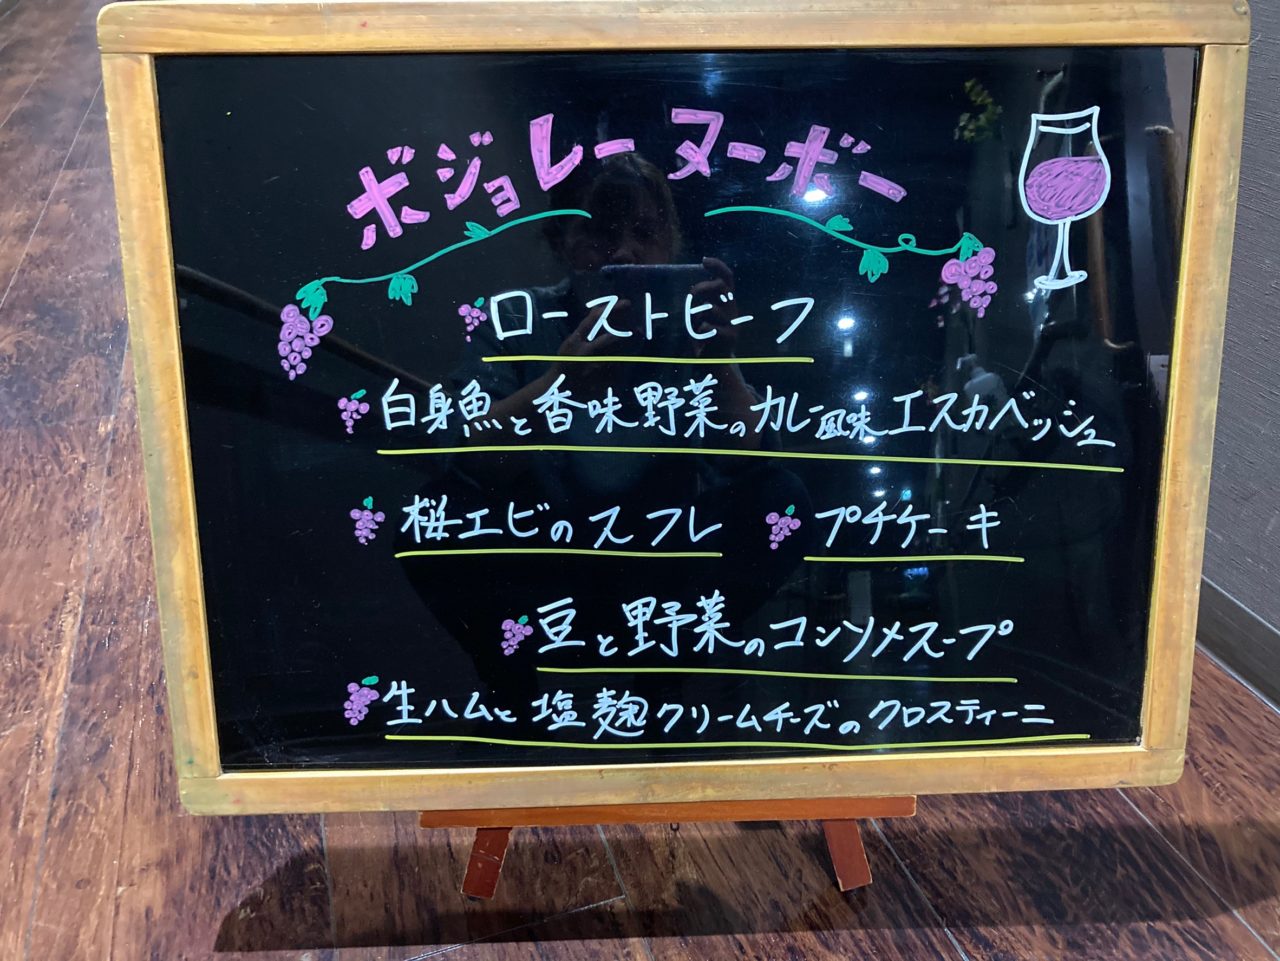 ボジョレーヌーボー
ローストビーフ
白身魚と香味野菜のカレー風味エスカベッシュ
桜エビのスフレ プチケーキ
豆と野菜のコンソメスープ
生ハムと塩麹クリームチーズのクロスティーニ